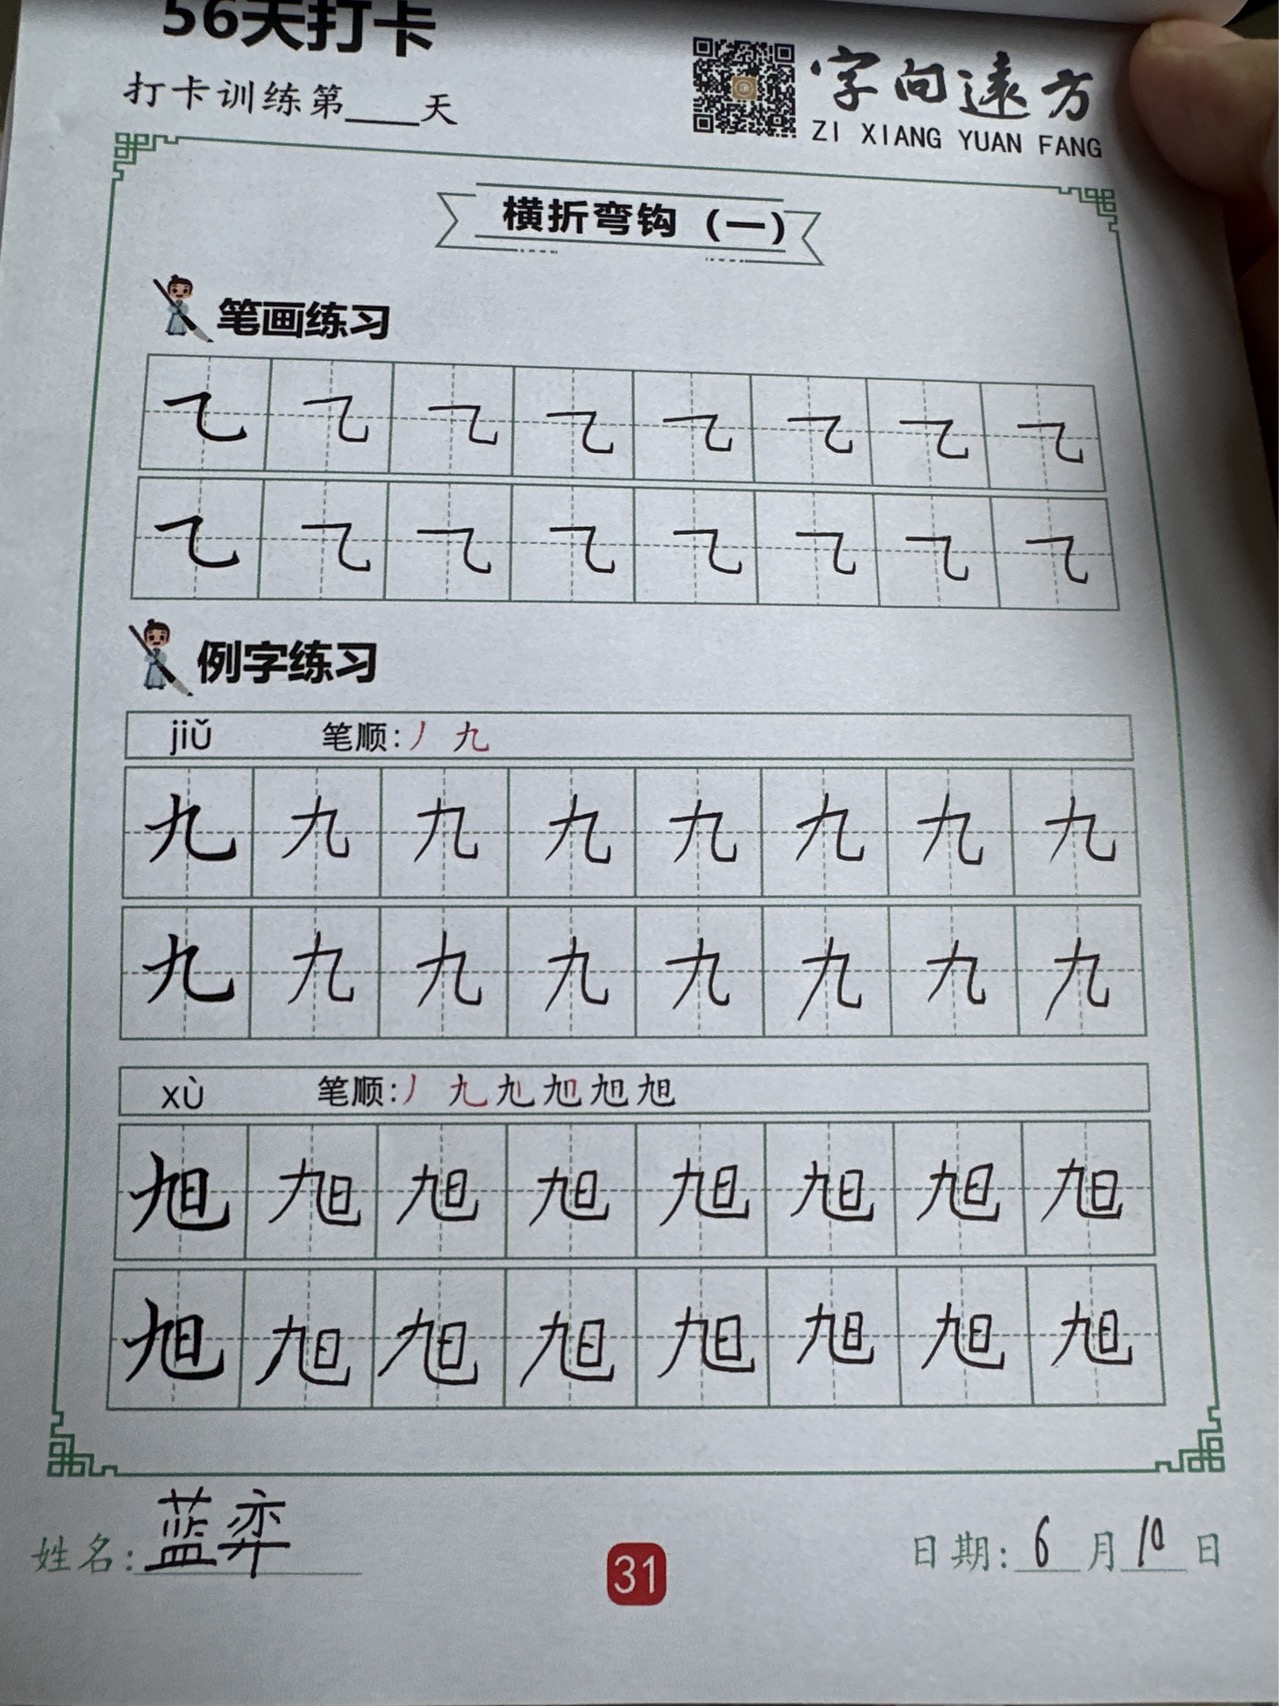 56天打卡
打卡训练第____天
字向远方
ZI XIANG YUAN FANG
横折弯钩（一）
笔画练习
⺄ ⺄ ⺄ ⺄ ⺄ ⺄ ⺄ ⺄
⺄ ⺄ ⺄ ⺄ ⺄ ⺄ ⺄ ⺄
例字练习
jiǔ 笔顺:丿 九
九 九 九 九 九 九 九 九
九 九 九 九 九 九 九 九
xù 笔顺:丿 九 旭 旭 旭 旭
旭 旭 旭 旭 旭 旭 旭 旭
旭 旭 旭 旭 旭 旭 旭 旭
姓名:蓝弈
31
日期:6月10日